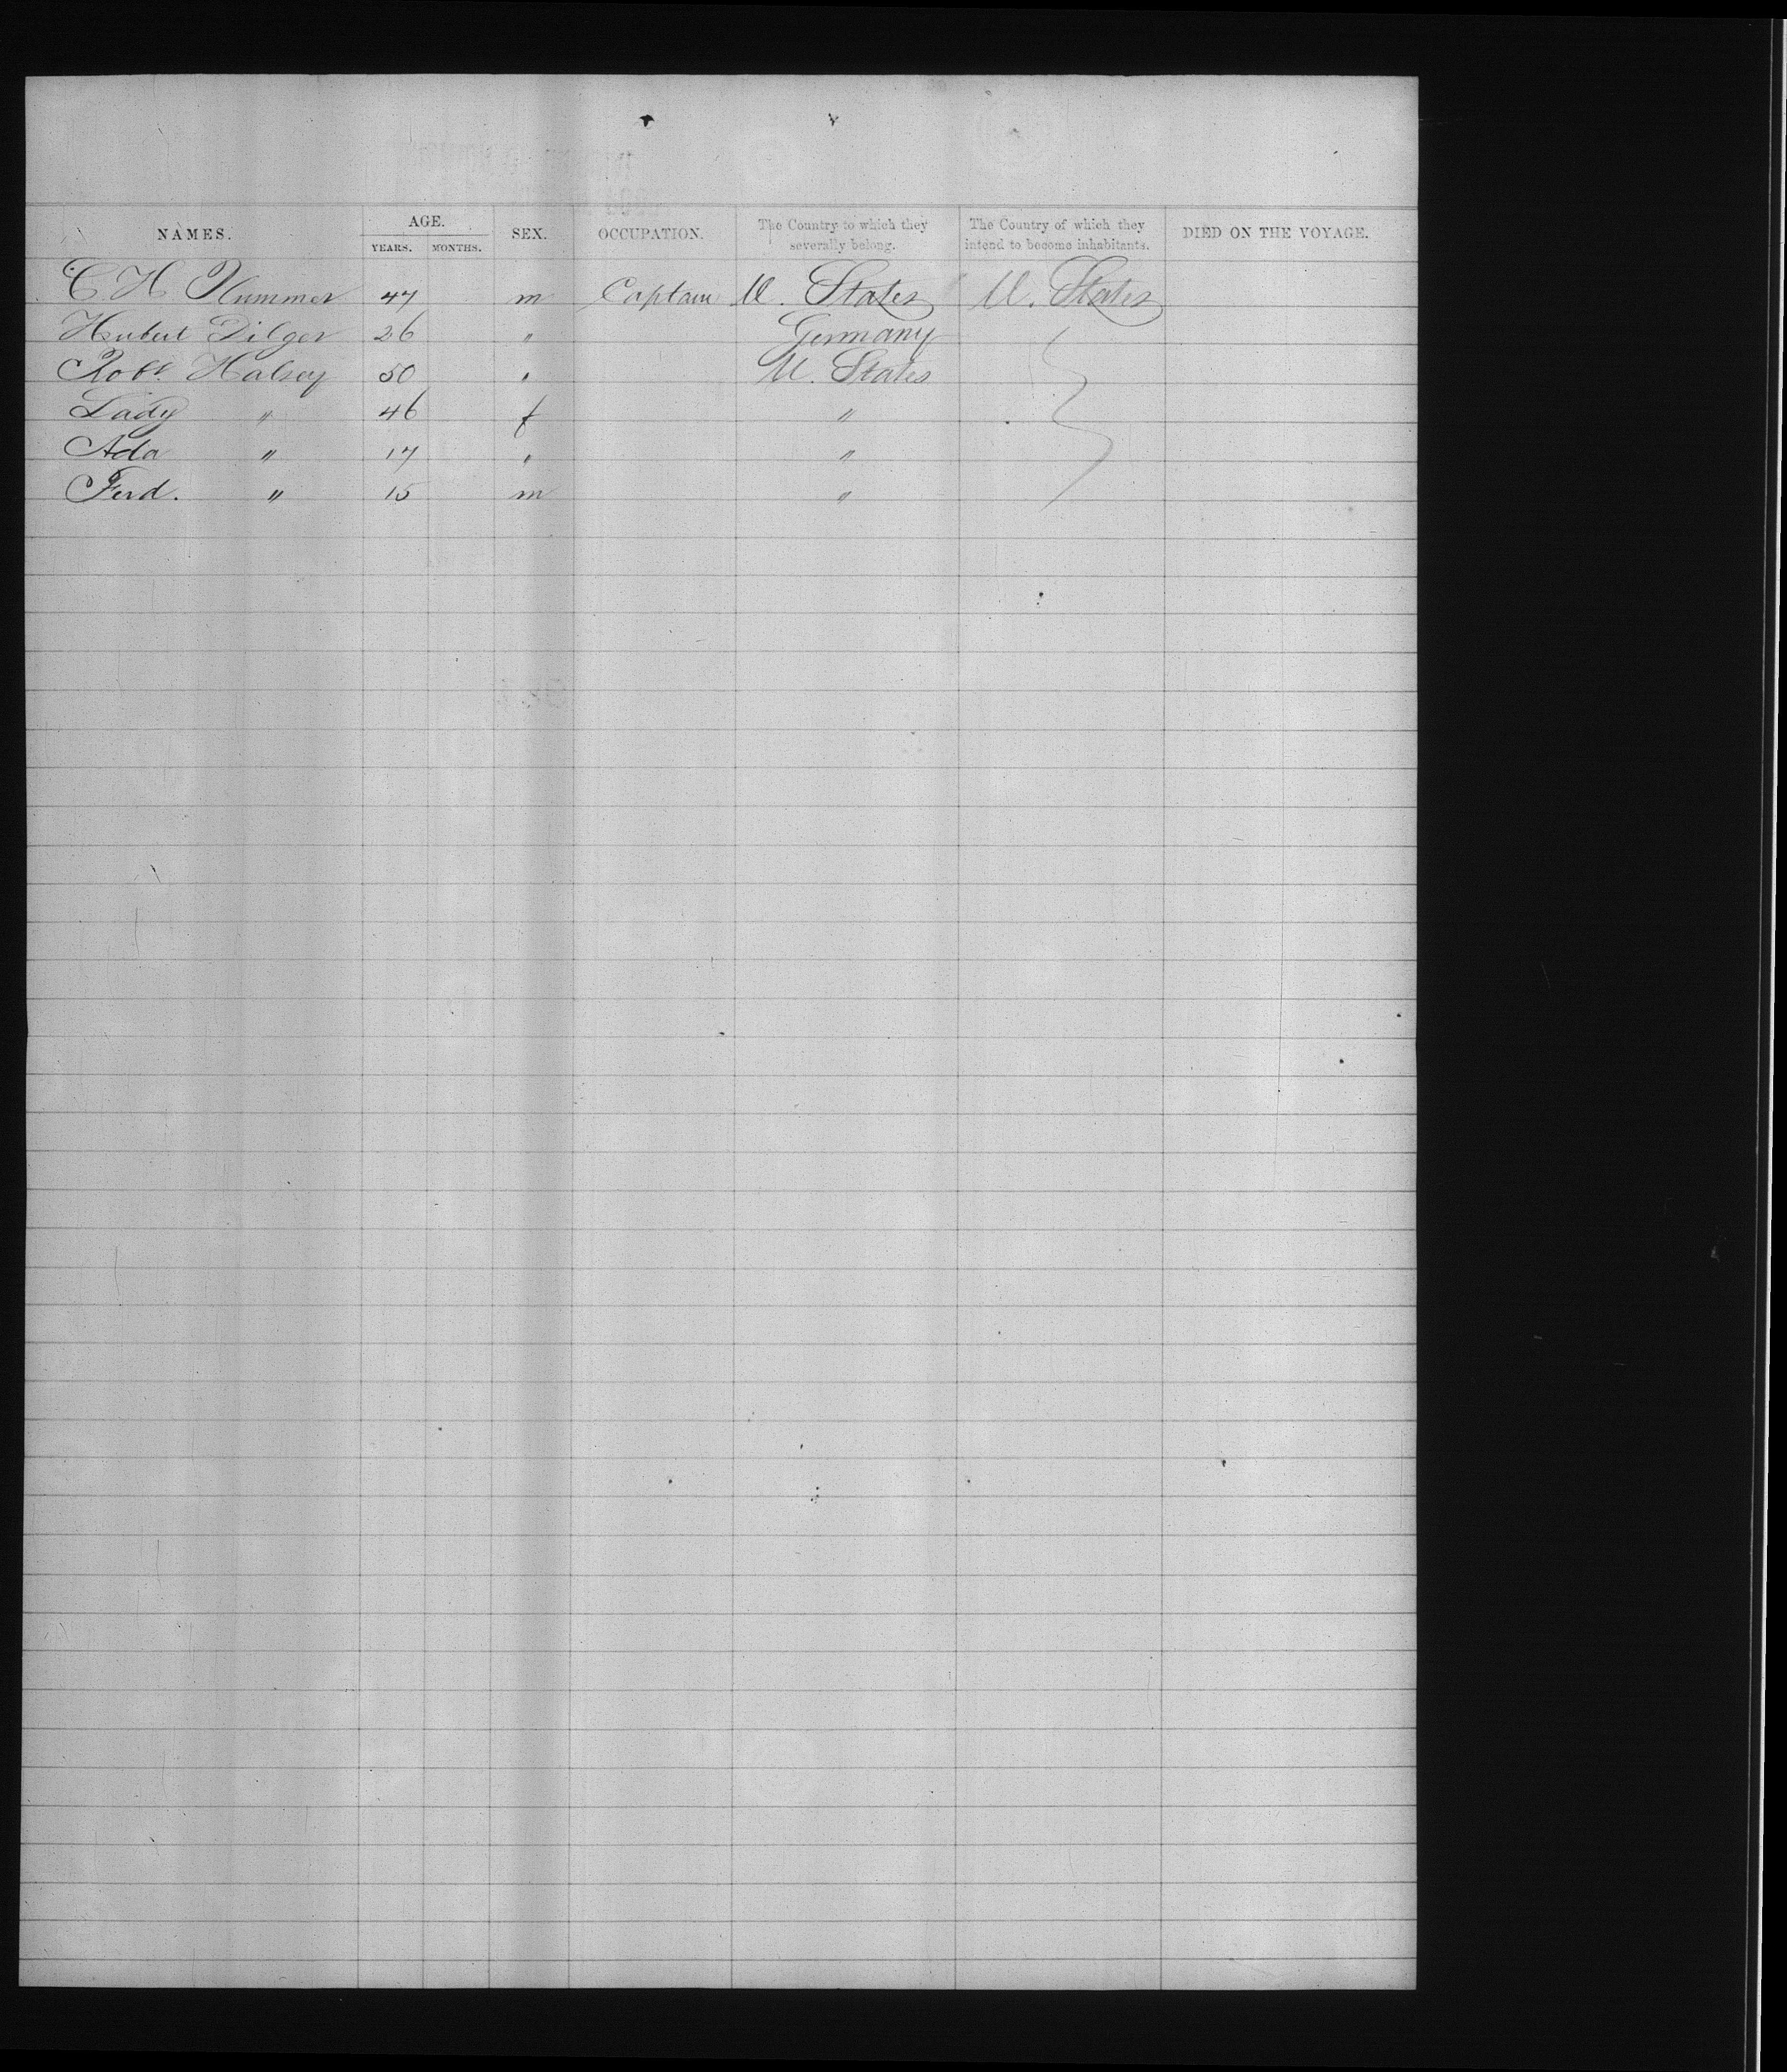 NAMES. AGE. SEX. OCCUPATION. The Country to which they severally belong. The Country of which they intend to become inhabitants. DIED ON THE VOYAGE.
YEARS. MONTHS.
C. H. 47 m Captain U. States U. States
Hubert Dilger 26 " Germany
Robt. Halsey 50 " U. States
Lady " 46 f "
Ada " 17 " "
Ferd. " 15 m "